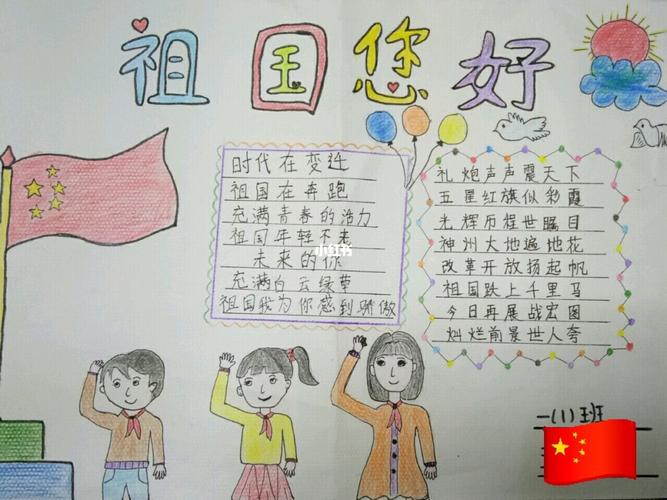 祖国您好
时代在变迁
祖国在奔跑
充满青春的活力
祖国年轻不老
未来的你
充满白云绿草
祖国我为你感到骄傲
礼炮声声震天下
五星红旗似彩霞
光辉历程世瞩目
神州大地遍地花
改革开放扬起帆
祖国跃上千里马
今日再展战宏图
灿烂前景世人夸
小红书
一(1)班